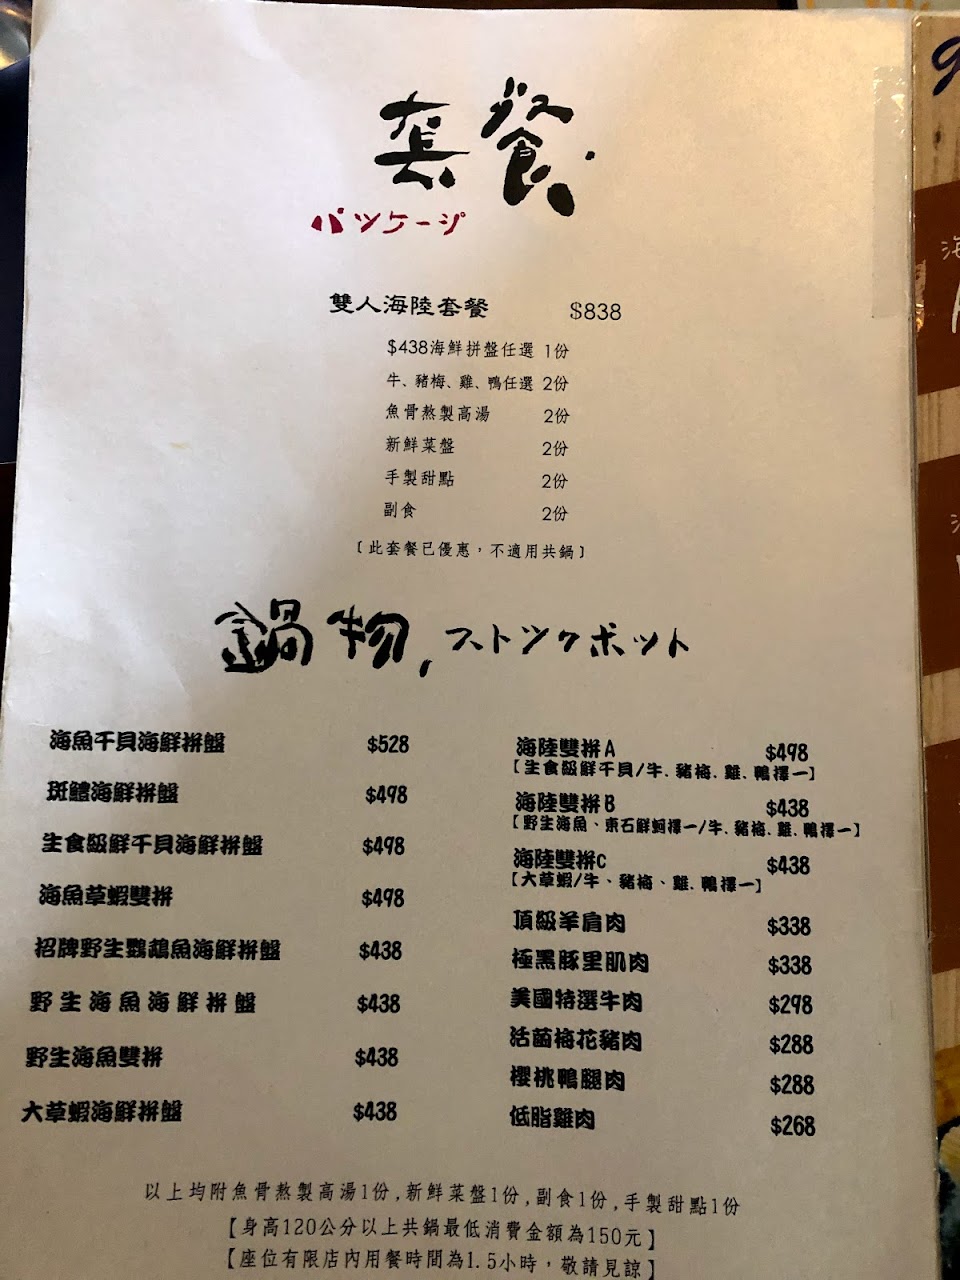 套餐
パッケージ
雙人海陸套餐 $838
$438海鮮拼盤任選 1份
牛、豬梅、雞、鴨任選 2份
魚骨熬製高湯 2份
新鮮菜盤 2份
手製甜點 2份
副食 2份
〔此套餐已優惠，不適用共鍋〕
鍋物, ストツクポット
海魚干貝海鮮拼盤 $528
斑鱧海鮮拼盤 $498
生食級鮮干貝海鮮拼盤 $498
海魚草蝦雙拼 $498
招牌野生鸚鵡魚海鮮拼盤 $438
野生海魚海鮮拼盤 $438
野生海魚雙拼 $438
大草蝦海鮮拼盤 $438
海陸雙拼A $498
【生食級鮮干貝/牛、豬梅、雞、鴨擇一】
海陸雙拼B $438
【野生海魚、東石鮮蚵擇一/牛、豬梅、雞、鴨擇一】
海陸雙拼C $438
【大草蝦/牛、豬梅、雞、鴨擇一】
頂級羊肩肉 $338
極黑豚里肌肉 $338
美國特選牛肉 $298
活菌梅花豬肉 $288
櫻桃鴨腿肉 $288
低脂雞肉 $268
以上均附魚骨熬製高湯1份,新鮮菜盤1份,副食1份,手製甜點1份
【身高120公分以上共鍋最低消費金額為150元】
【座位有限店內用餐時間為1.5小時，敬請見諒】